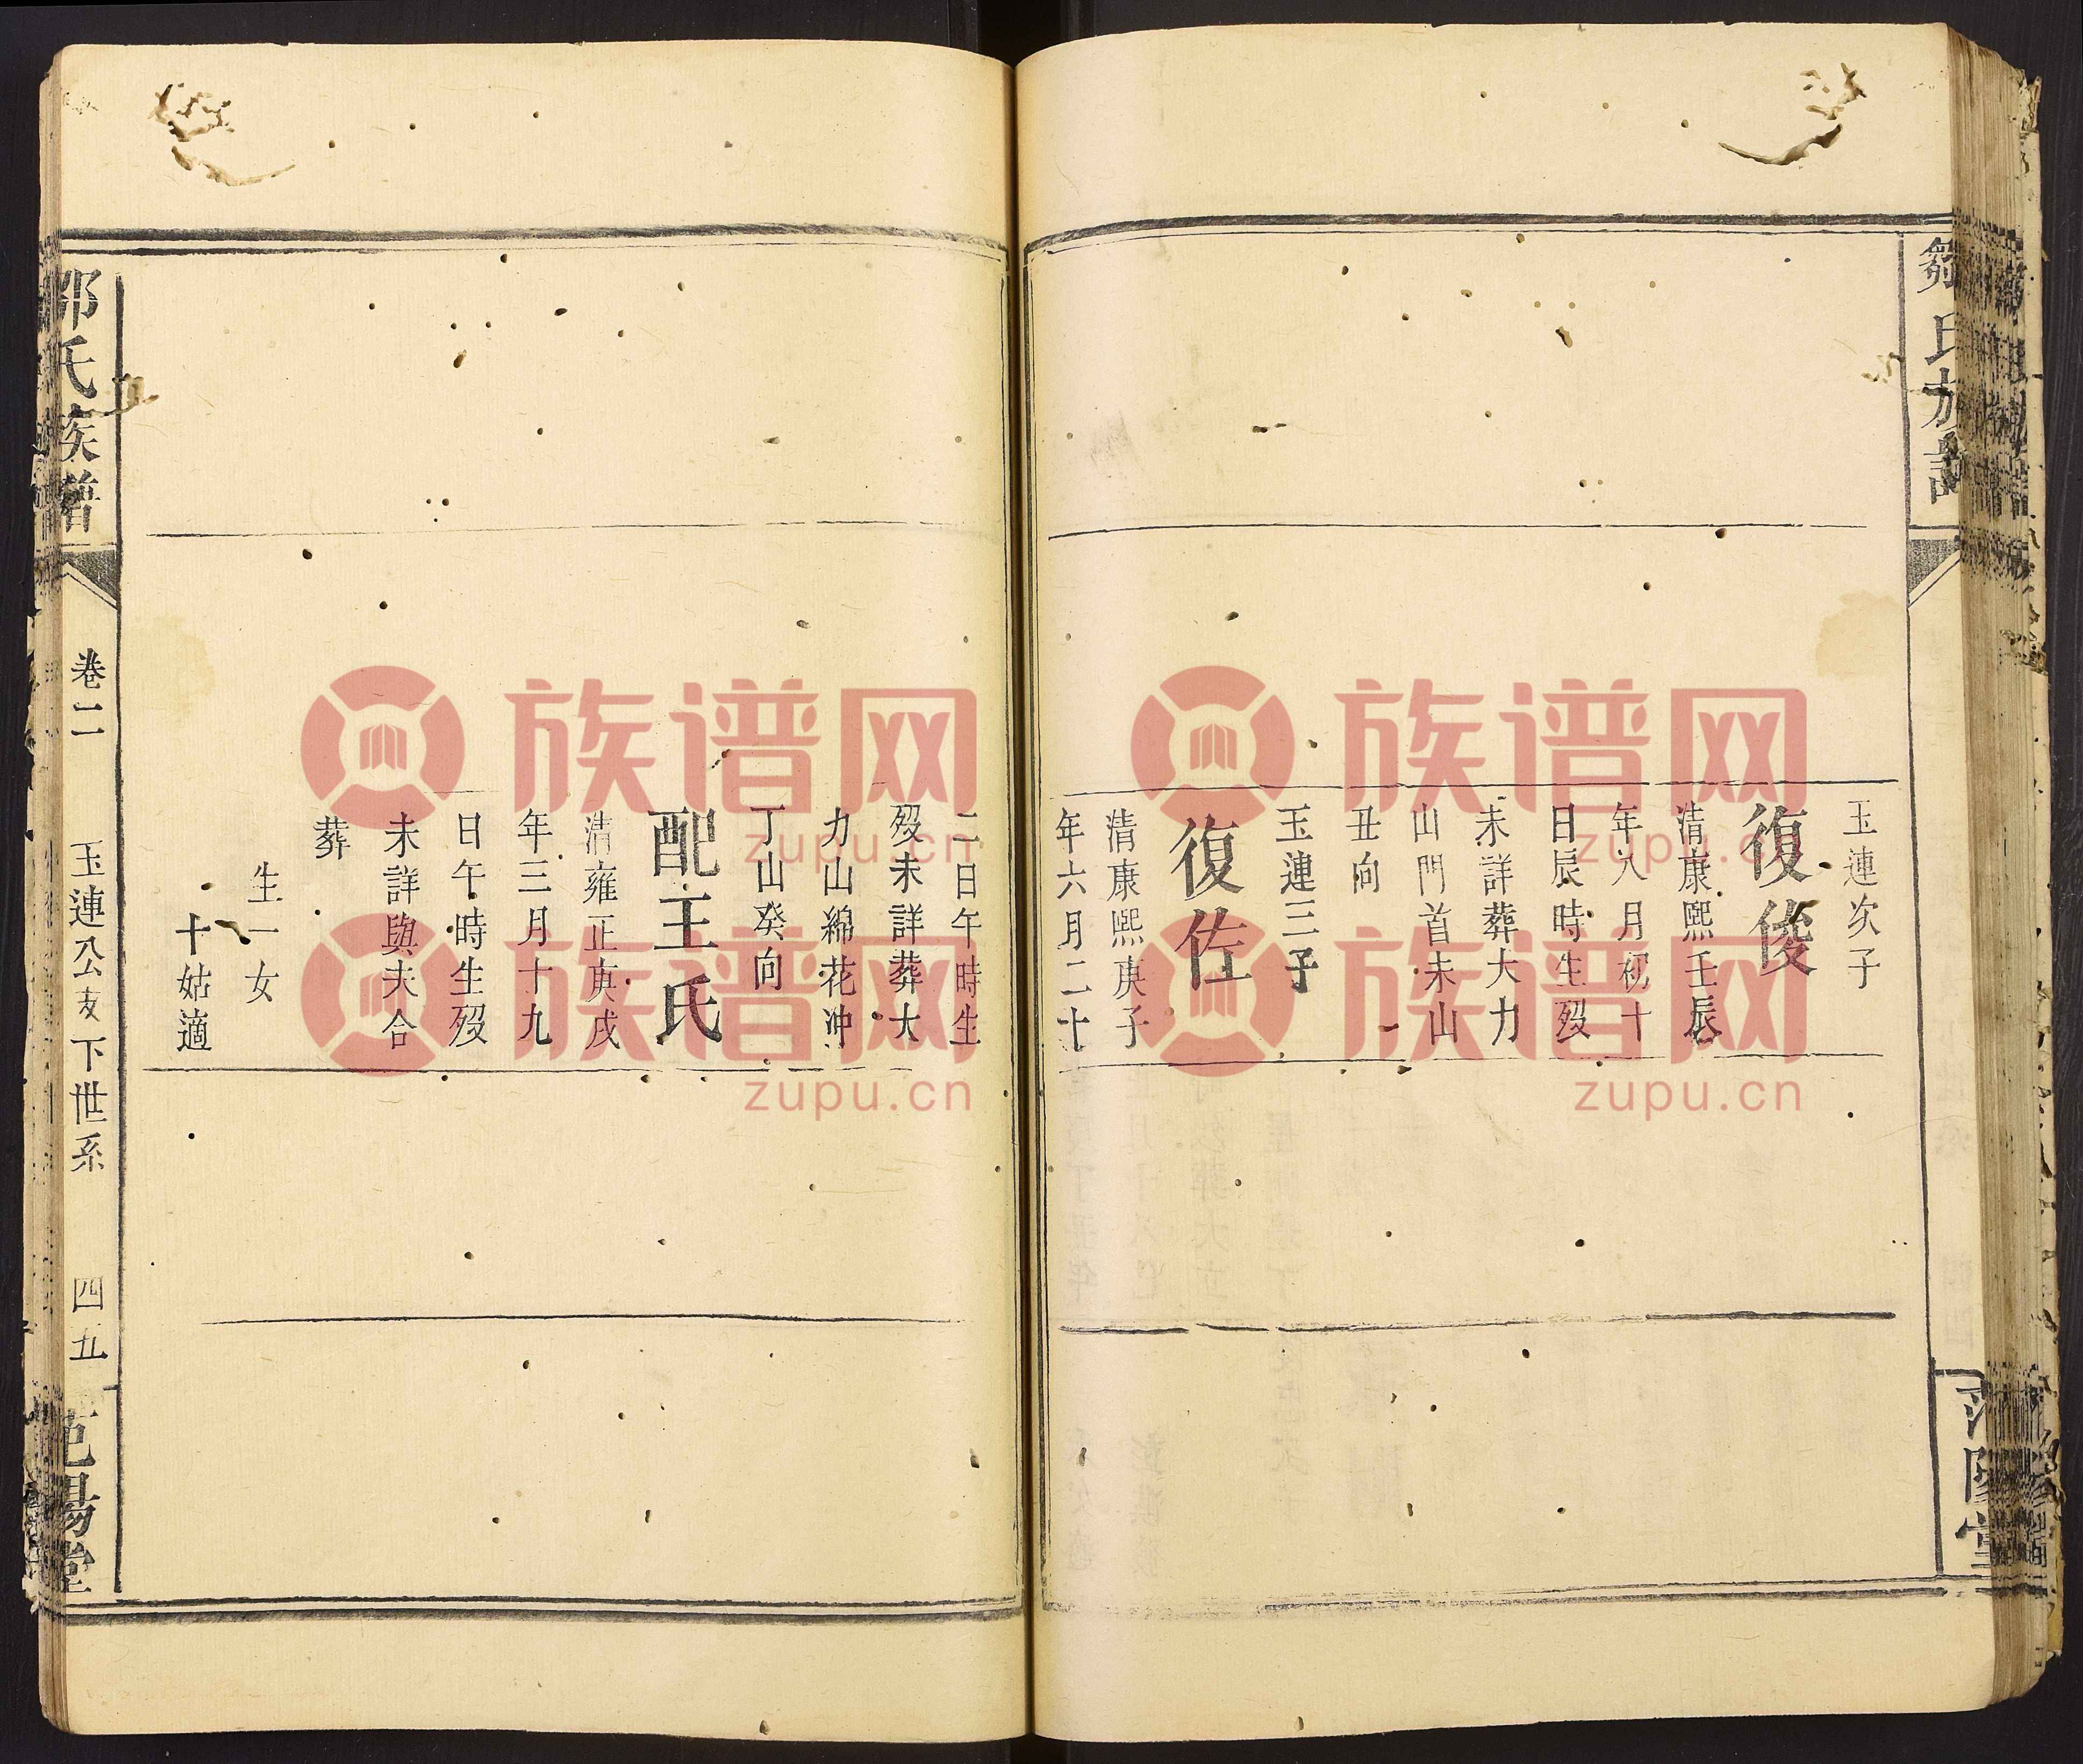 玉連次子
復俊
清康熙壬辰
年八月初十
日辰時生歿
未詳葬大力
山門首未山
丑向
玉連三子
復佐
清康熙庚子
年六月二十
二日午時生
歿未詳葬大
力山綿花冲
丁山癸向
配王氏
清雍正庚戌
年三月十九
日午時生歿
未詳與夫合
葬
生一女
十姑適
鄒氏族譜
卷二
玉連公支下世系
四五
范陽堂
族谱网
zupu.cn
族谱网
zupu.cn
族谱网
zupu.cn
族谱网
zupu.cn